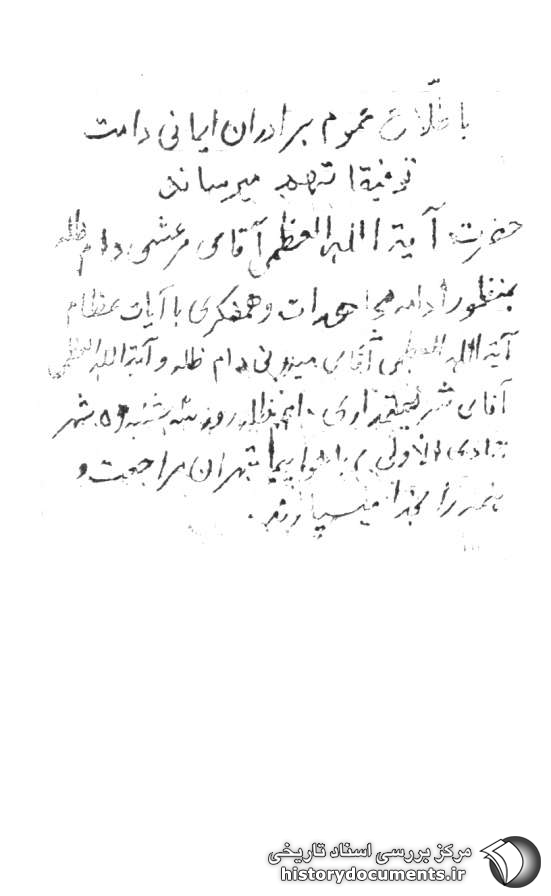 باطلاع عموم برادران ایمانی دامت
توفیقاتهم میرساند
حضرت آیة الله العظمی آقای مرعشی دام ظله
بمنظور ادامه مجاهدات و همفکری با آیات عظام
آیة الله العظمی آقای میلانی دام ظله و آیة الله العظمی
آقای شریعتمداری دام ظله روز سه شنبه ۵ شهر
جمادی الاولی با هواپیما بتهران مراجعت و
همه را بخدا میسپارند.
مرکز بررسی اسناد تاریخی
historydocuments.ir